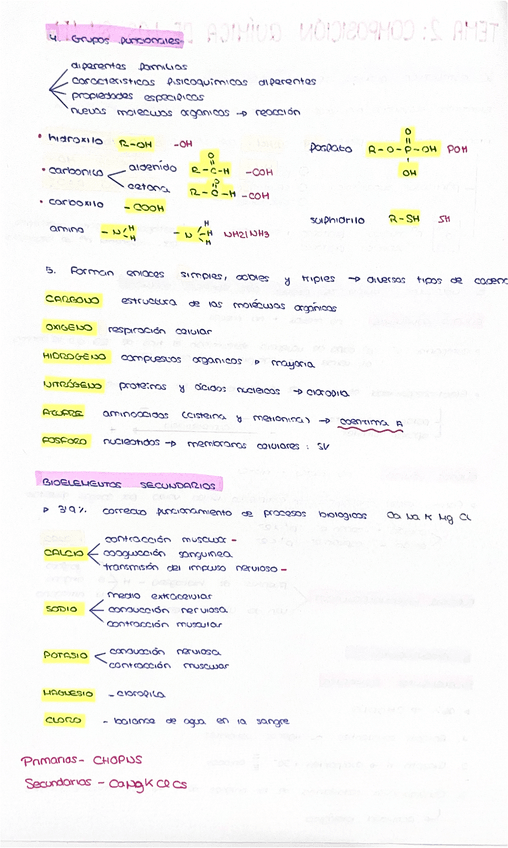 4. Grupos funcionales
diferentes familias
características fisicoquímicas diferentes
propiedades específicas
nuevas moléculas orgánicas → reacción
• hidroxilo R-OH -OH
fosfato R-O-P-OH POH
O
OH
• carbonilo aldehído R-C-H -COH
O
cetona R-C-H -COH
O
• carboxilo -COOH
sulfhidrilo R-SH SH
amino -N H H -N H H NH2/NH3
5. Forman enlaces simples, dobles y triples → diversos tipos de caden
CARBONO estructura de las moléculas orgánicas
OXIGENO respiración celular
HIDROGENO compuestos orgánicos mayoría
NITRÓGENO proteínas y ácidos nucleicos → clorofila
AZUFRE aminoácidos (cisteína y metionina) → coenzima A
FOSFORO nucleótidos → membranas celulares: SV
BIOELEMENTOS SECUNDARIOS
correcto funcionamiento de procesos biológicos Ca Na K Mg Cl
CALCIO
contracción muscular -
coagulación sanguínea
transmisión del impulso nervioso -
SODIO
medio extracelular
conducción nerviosa
contracción muscular
POTASIO
conducción nerviosa
contracción muscular
MAGNESIO - clorofila
CLORO - balance de agua en la sangre
Primarios - CHOPNS
Secundarios -